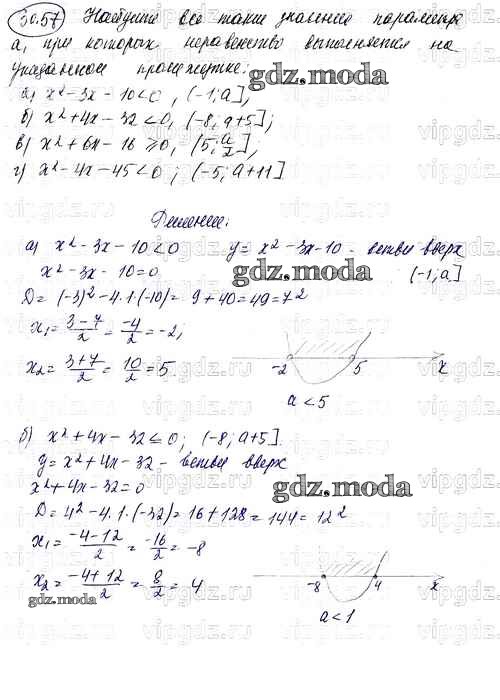 30.57 Найдите все такие значения параметра
a, при которых неравенство выполняется на
указанном промежутке:
gdz.moda
а) x² - 3x - 10 < 0, (-1; a];
б) x² + 4x - 32 < 0, (-8, a+5];
в) x² + 6x - 16 ≥ 0, (5; a/2];
г) x² - 4x - 45 < 0; (-5; a+11]
Решение:
а) x² - 3x - 10 < 0 y = x² - 3x - 10 - ветви вверх
x² - 3x - 10 = 0 gdz.moda (-1; a]
D = (-3)² - 4·1·(-10) = 9 + 40 = 49 = 7²
x₁ = (3-7)/2 = -4/2 = -2;
x₂ = (3+7)/2 = 10/2 = 5
-2 5 x
a < 5
б) x² + 4x - 32 ≤ 0; (-8; a+5].
y = x² + 4x - 32 - ветви вверх
x² + 4x - 32 = 0 gdz.moda
D = 4² - 4·1·(-32) = 16 + 128 = 144 = 12²
x₁ = (-4-12)/2 = -16/2 = -8
x₂ = (-4+12)/2 = 8/2 = 4
-8 4 x
gdz.moda
a < 1